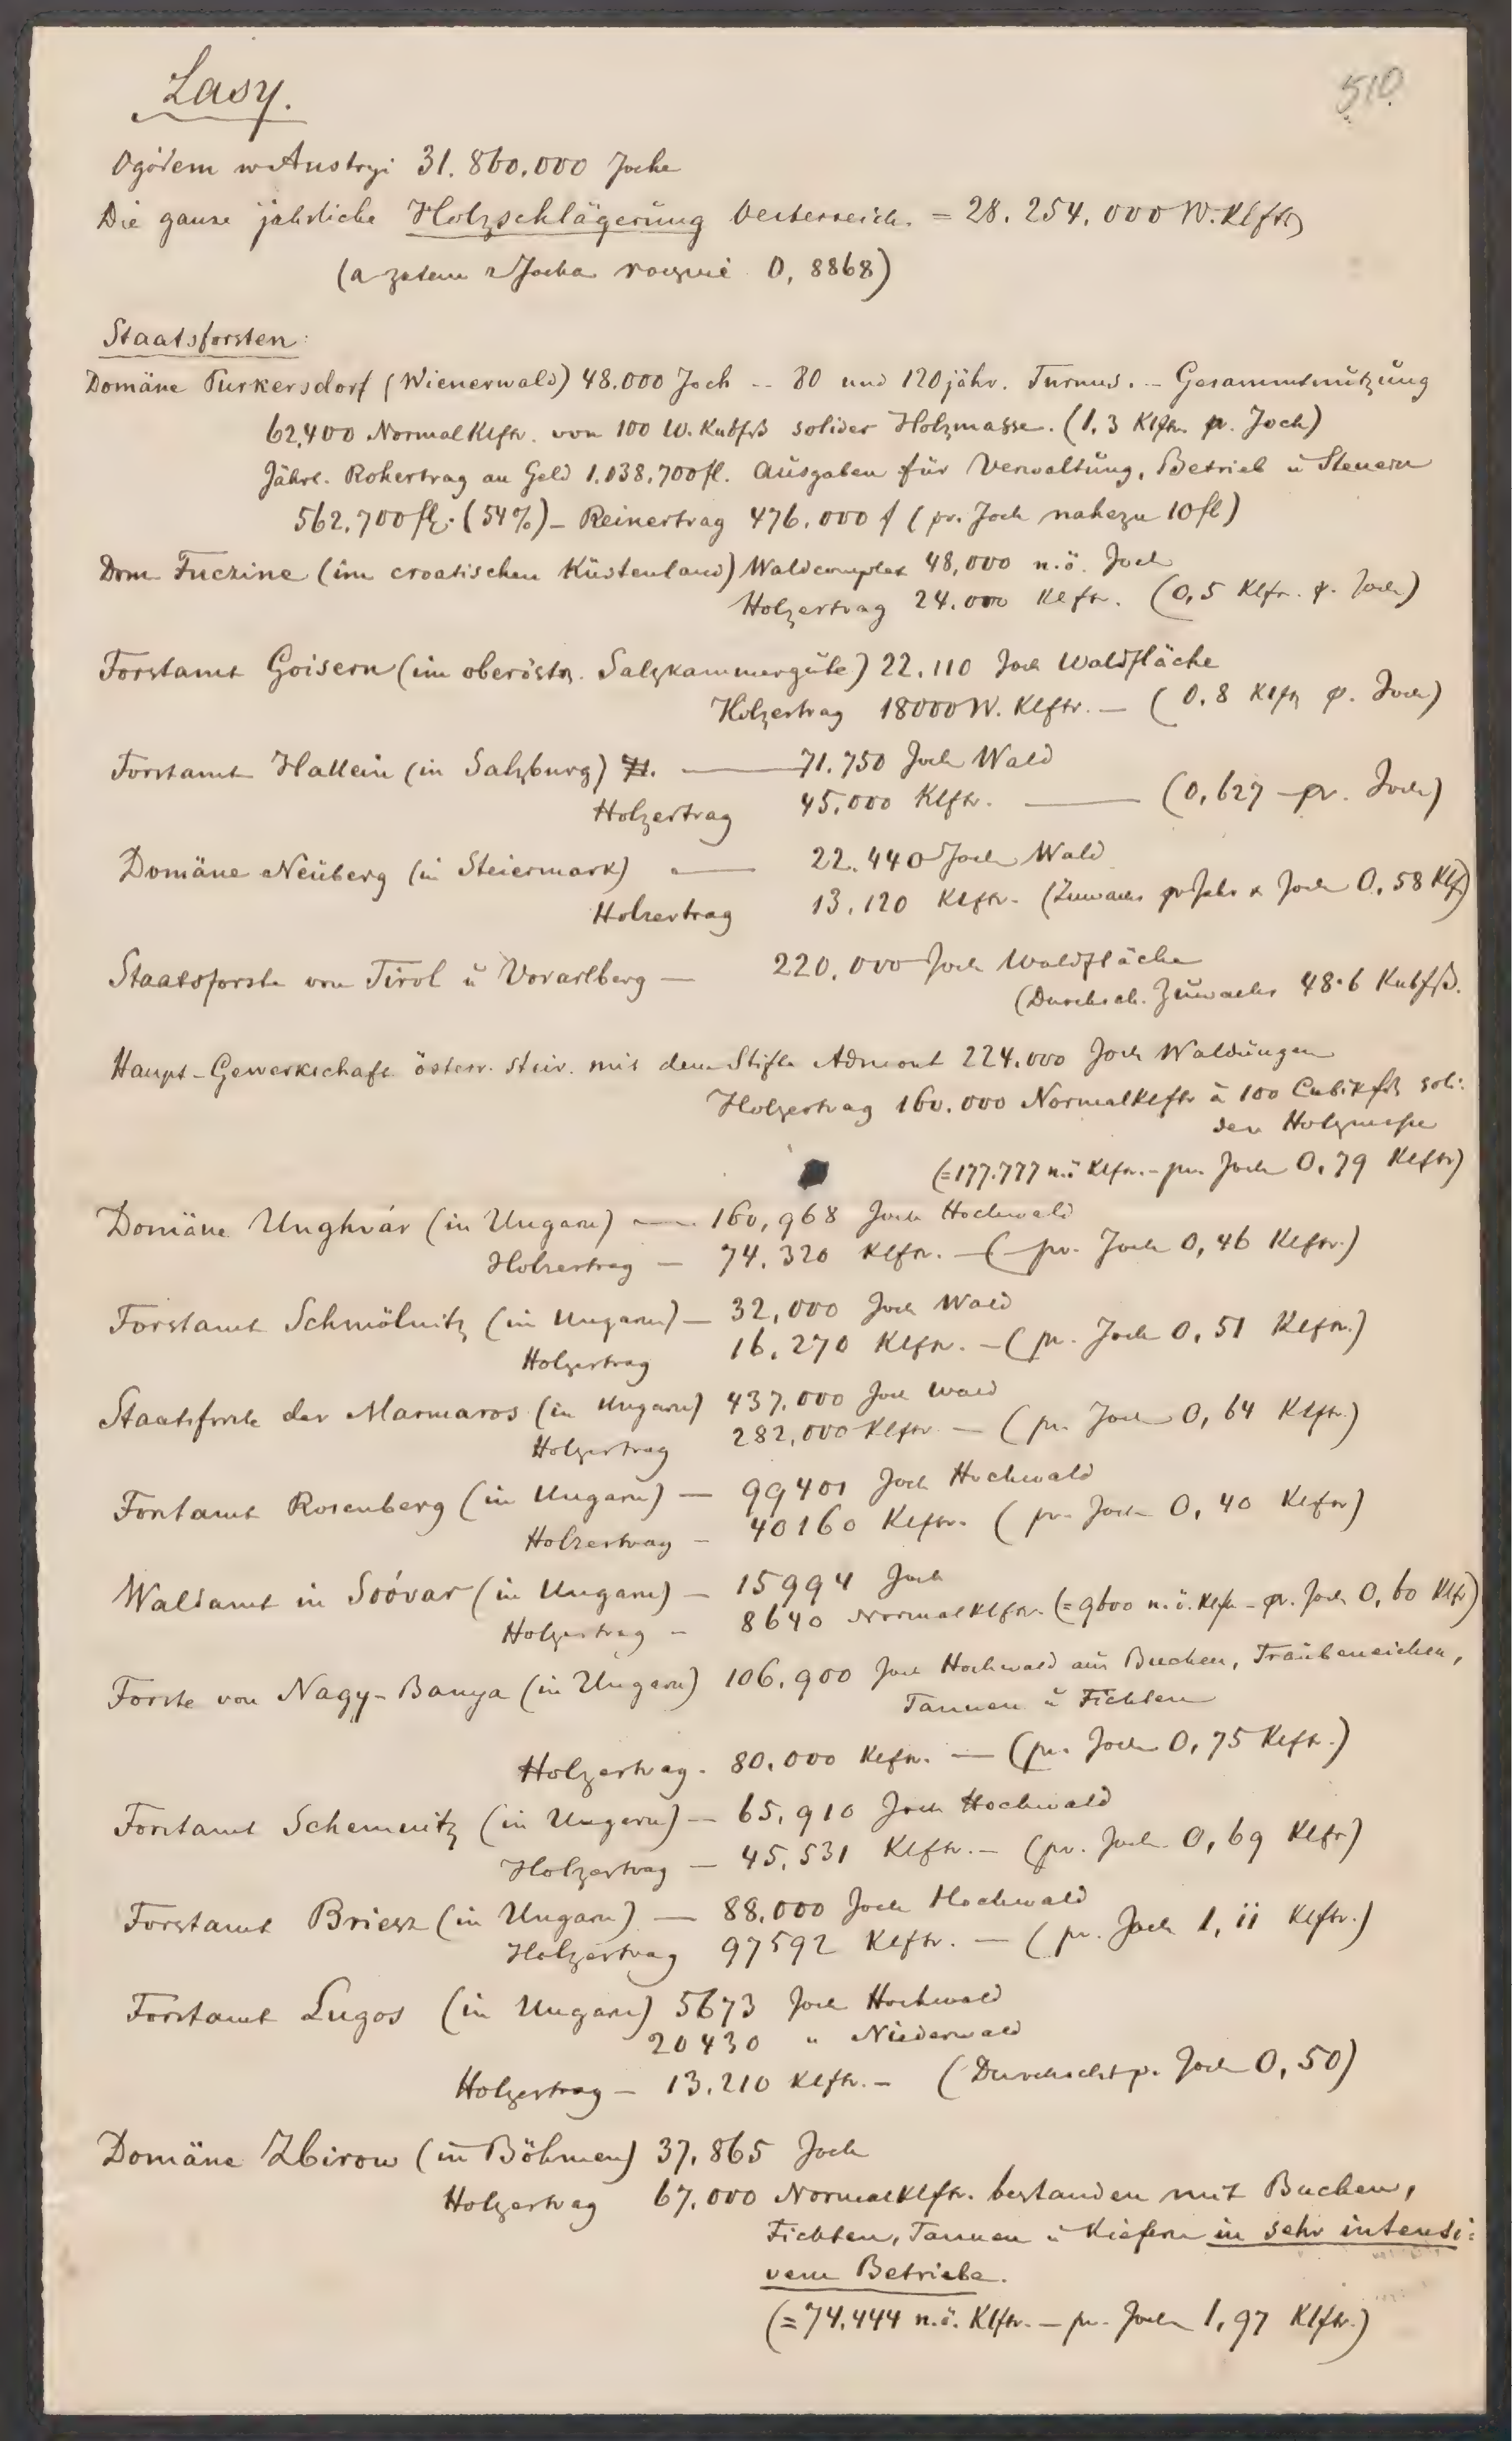 Lasy.
510
Ogółem w Austryi 31.860.000 Joche
Die ganze jährliche Holzschlägerung Oesterreich. = 28.254.000 W. Klftr
(a zatem z Jocha rocznie 0,8868)
Staatsforsten:
Domäne Purkersdorf (Wienerwald) 48.000 Joch -- 80 und 120jähr. Turnus. - Gesammtnutzung
62,400 Normal Klftr. von 100 W. Kubfß solider Holzmasse. (1,3 Klftr. pr. Joch)
Jährl. Rohertrag an Geld 1.038.700 fl. Ausgaben für Verwaltung, Betrieb u Steuern
562.700 fl. (54%) - Reinertrag 476.000 f (pr. Joch nahezu 10 fl)
Dom Fuczine (im croatischen Küstenland) Waldcomplex 48,000 n.ö. Joch
Holzertrag 24.000 Klftr. (0,5 Klftr. p. Joch)
Forstamt Goisern (im oberöstr. Salzkammergute) 22.110 Joch Waldfläche
Holzertrag 18000 W. Klftr. - (0.8 Klftr p. Joch)
Forstamt Hallein (in Salzburg) 71. — 71.750 Joch Wald
Holzertrag 45.000 Klftr. — (0,627 pr. Joch)
Domäne Neuberg (in Steiermark) — 22.440 Joch Wald
Holzertrag 13.120 Klftr. (Zuwachs pr Jahr & Joch 0,58 Klf)
Staatsforste von Tirol u Vorarlberg — 220.000 Joch Waldfläche
(Durchsch. Zuwachs 48.6 Kubfß.
Haupt-Gewerkschaft österr. steir. mit dem Stifte Admont 224.000 Joch Waldungen
Holzertrag 160.000 Normalklftr à 100 Cubikfß soli:
der Holzmasse
(=177.777 n.ö Klftr. - pr. Joch 0,79 Klftr)
Domäne Unghvár (in Ungarn) — 160,968 Joch Hochwald
Holzertrag — 74.320 Klftr. — (pr. Joch 0,46 Klftr.)
Forstamt Schmölnitz (in Ungarn) — 32,000 Joch Wald
Holzertrag 16.270 Klftr. - (pr. Joch 0,51 Klftr.)
Staatsforste der Marmaros (in Ungarn) 437.000 Joch Wald
Holzertrag 282,000 Klftr — (pr. Joch 0,64 Klftr.)
Forstamt Rosenberg (in Ungarn) — 99401 Joch Hochwald
Holzertrag - 40160 Klftr. (pr. Joch 0,40 Klftr)
Waldamt in Soóvar (in Ungarn) — 15994 Joch
Holzertrag - 8640 Normalklftr. (=9600 n.ö. Klftr - pr. Joch 0,60 Klftr)
Forste von Nagy-Banya (in Ungarn) 106.900 Joch Hochwald aus Buchen, Traubeneichen,
Tannen u Fichten
Holzertrag. 80.000 Klftr. — (pr. Joch 0,75 Klftr.)
Forstamt Schemnitz (in Ungarn) — 65.910 Joch Hochwald
Holzertrag — 45.531 Klftr. - (pr. Joch 0,69 Klftr)
Forstamt Briesz (in Ungarn) — 88.000 Joch Hochwald
Holzertrag 97592 Klftr. — (pr. Joch 1,11 Klftr.)
Forstamt Lugos (in Ungarn) 5673 Joch Hochwald
20430 " Niederwald
Holzertrag — 13.210 Klftr. - (Durchscht p. Joch 0,50)
Domäne Zbirow (in Böhmen) 37.865 Joch
Holzertrag 67.000 Normalklftr. bestanden mit Buchen,
Fichten, Tannen u Kiefern in sehr intensi:
vem Betriebe.
(=74.444 n.ö. Klftr. — pr. Joch 1,97 Klftr.)